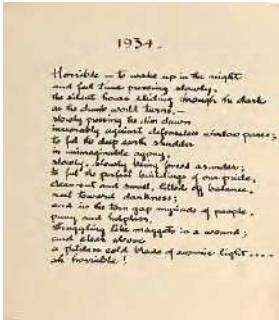 1934.
Horrible — to wake up in the night
and feel time pressing slowly,
the silent hours sliding through the dark
as the dumb world turns, —
slowly pressing the dim dawn
inexorably against defenseless window panes;
to feel the deep earth shudder
in unimaginable agony,
slowly, slowly being forced asunder;
to feel the perfect buildings of our pride,
clear cut and small, tilted off balance,
reel toward darkness;
and in the torn gap myriads of people,
puny and helpless,
struggling like maggots in a wound;
and clear above
a pitiless cold blade of cosmic light....
ah horrible!